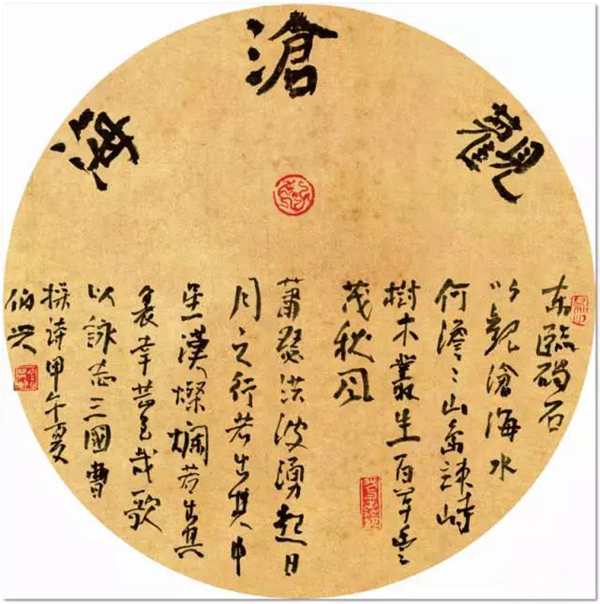 觀滄海
东臨碣石
以觀滄海水
何澹〻山島竦峙
樹木叢生百草豐
茂秋風
蕭瑟洪波湧起日
月之行若出其中
星漢燦爛若出其
裏幸甚至哉歌
以詠志三國曹
操詩甲午夏
伯兴